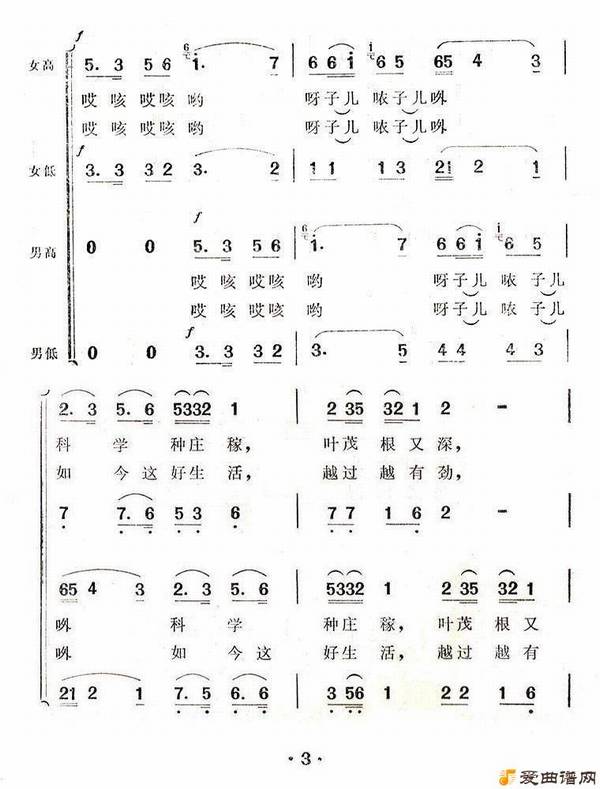 f
6 i
女高 5. 3 5 6 i. 7 6 6 i 6 5 65 4 3
哎咳哎咳哟 呀子儿哝子儿咧
哎咳哎咳哟 呀子儿哝子儿咧
f
女低 3. 3 3 2 3. 2 1 1 1 3 21 2 1
f 6 i
男高 0 0 5. 3 5 6 i. 7 6 6 i 6 5
哎咳哎咳 哟 呀子儿哝子儿
哎咳哎咳 哟 呀子儿哝子儿
f
男低 0 0 3. 3 3 2 3. 5 4 4 4 3
2. 3 5. 6 5332 1 2 35 32 1 2 -
科学种庄稼, 叶茂根又深,
如今这好生活, 越过越有劲,
7 7. 6 5 3 6 7 7 1 6 2 -
65 4 3 2. 3 5. 6 5332 1 2 35 32 1
咧 科学 种庄稼, 叶茂根又
咧 如今这 好生活, 越过越有
21 2 1 7. 5 6. 6 3 56 1 2 2 1 6
· 3 ·
爱曲谱网